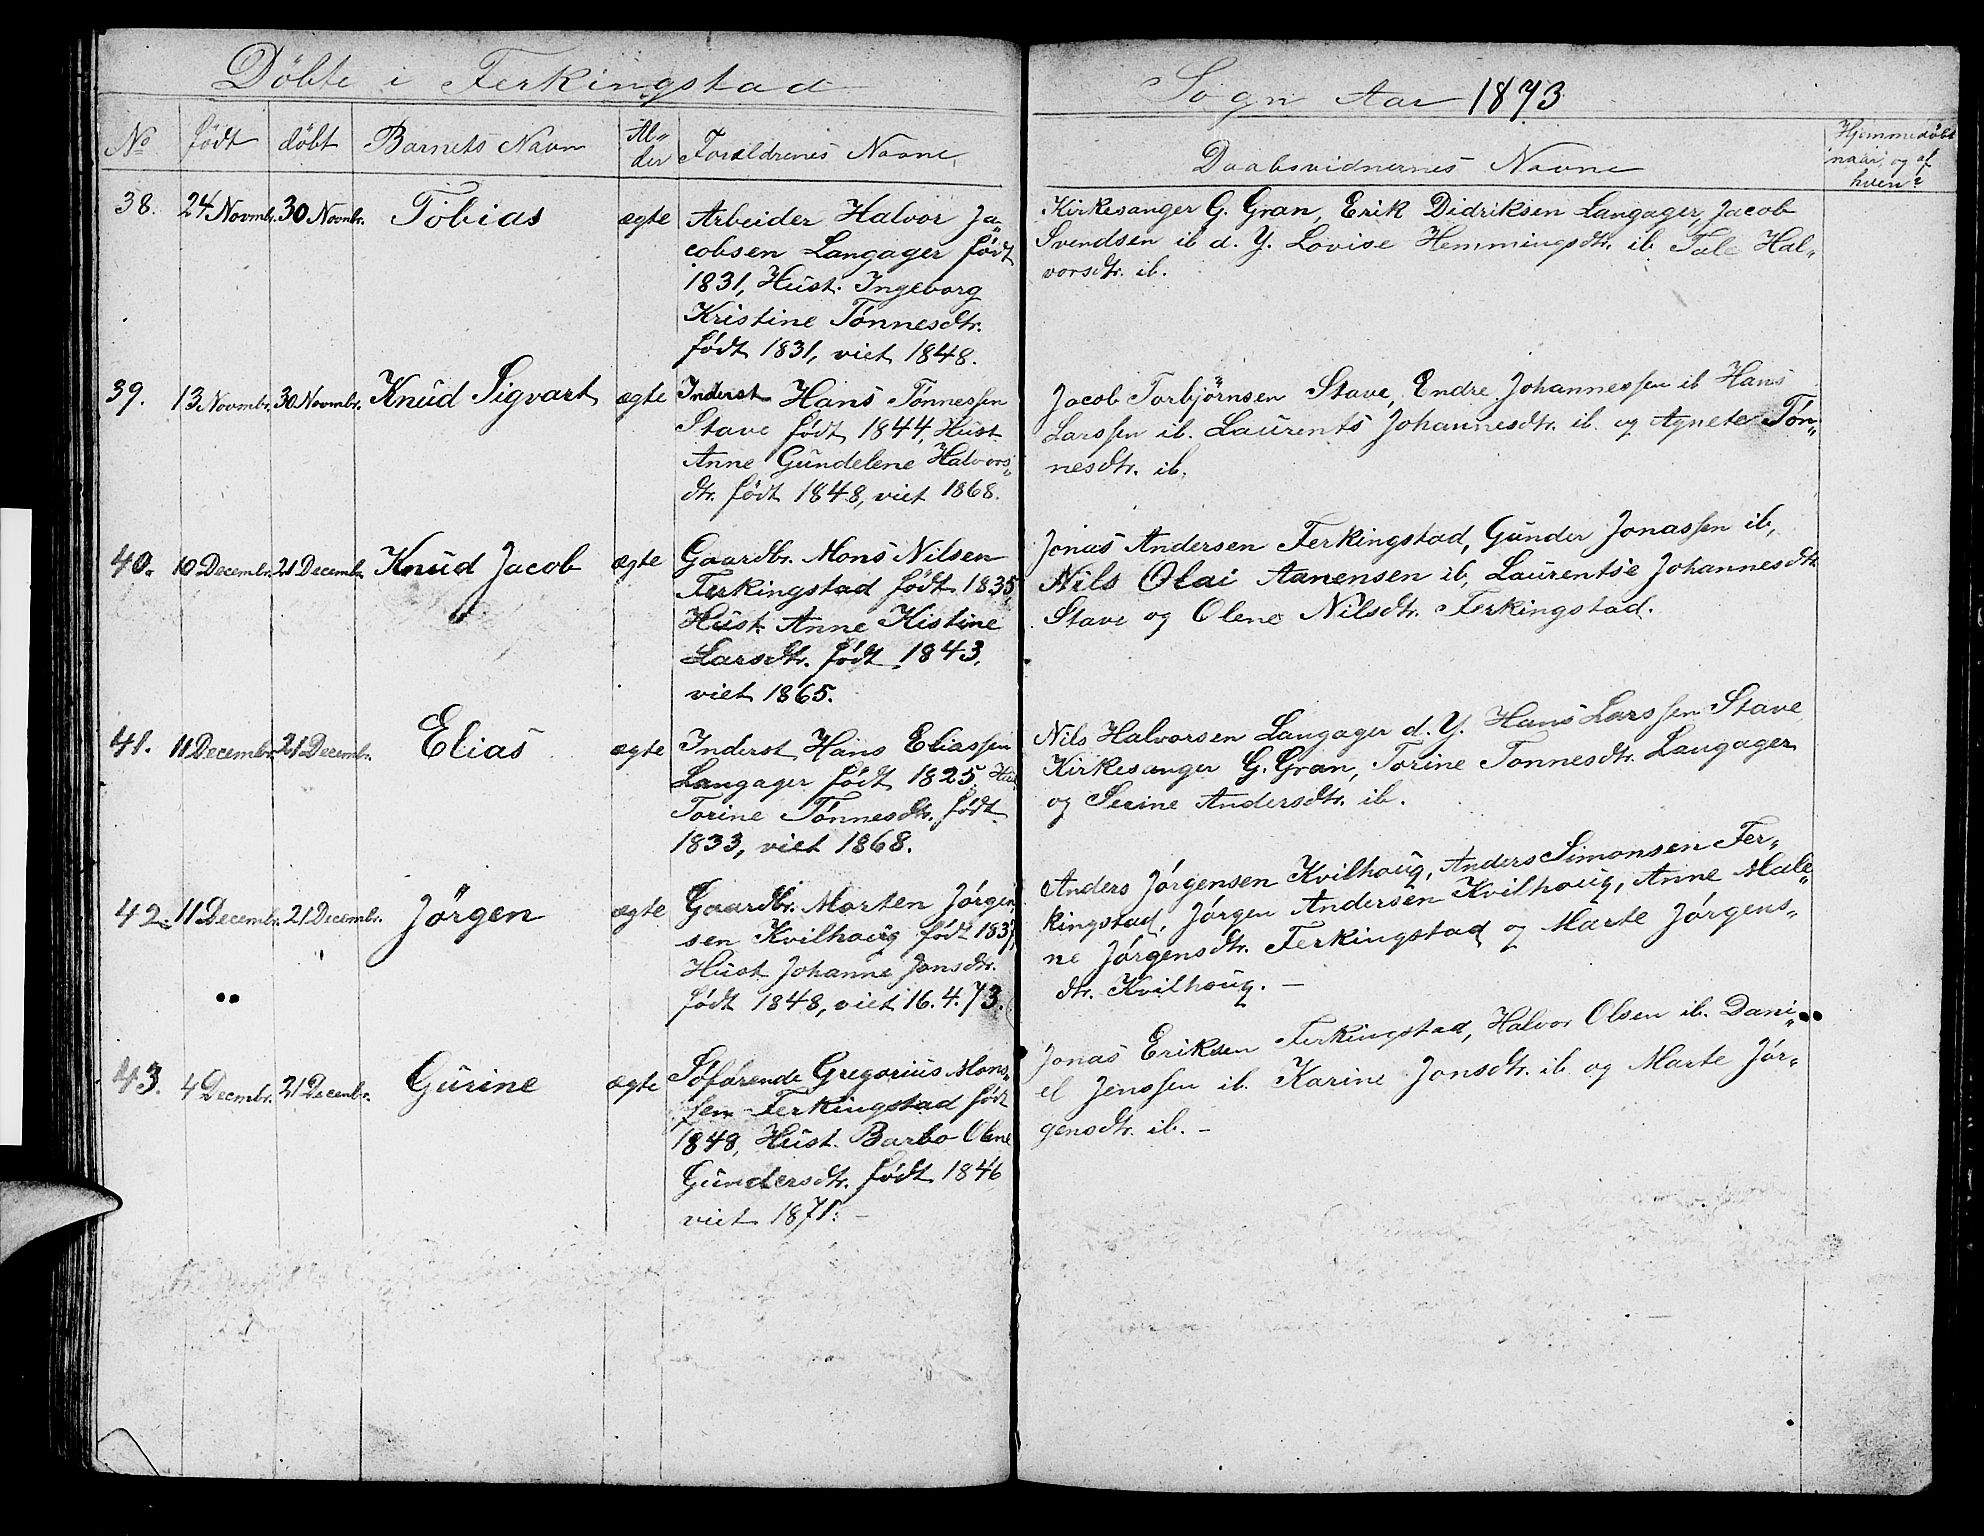 Döbte i Ferkingstad
No födt döbt Barnets Navn Al- der Forældrenes Navne
38. 24 Novmb. 30 Novmbr. Tobias ægte Arbeider Halvor Ja-
cobsen Langager födt
1831, Hust. Ingeborg
Kristine Tönnesdtr.
födt 1831, viet 1848.
39. 13 Novmbr. 30 Novmbr. Knud Sigvart ægte Inderst Hans Tönnessen
Stave födt 1844, Hust.
Anne Gundelene Halvors-
dtr. födt 1848, viet 1868.
40. 10 Decembr. 21 Decembr. Knud Jacob ægte Gaardbr. Mons Nilsen
Ferkingstad födt 1835,
Hust. Anne Kistine
Larsdtr. födt 1843,
viet 1865.
41. 11 Decembr. 21 Decembr. Elias ægte Inderst Hans Eliassen
Langager födt 1825 Hust.
Torine Tönnesdtr. födt
1833, viet 1868.
42. 11 Decembr. 21 Decembr. Jörgen ægte Gaardbr. Morten Jörgen
sen Kvilhoug födt 1837,
Hust Johanne Jonsdtr.
födt 1848, viet 16.4.73.
43. 4 Decembr. 21 Decembr. Gurine ægte Söfarende Gregorius Mons-
sen Ferkingstad födt
1848, Hust. Barbo Olene
Gundersdtr. födt 1846
viet 1871. –
Sogn Aar 1873
Daabsvidnernes Navne
Hjemmedöbt
naar, og af
hvem?
Kirkesanger G. Gran, Erik Didriksen Langager, Jacob
Svendsen ib d. Y. Lovise Hemmingsdtr. ib. Tale Hal-
vorsdtr. ib.
Jacob Torbjörnsen Stave, Endre Johannessen ib Hans
Larssen ib. Laurents Johannesdtr. ib. og Agnete Tön-
nesdtr. ib.
Jonas Andersen Ferkingstad, Gunder Jonassen ib,
Nils Olai Aanensen ib, Laurentse Johannesdtr
Stave og Olene Nilsdtr. Ferkingstad.
Nils Halvorsen Langager d. Y. Hans Larssen Stave
Kirkesanger G. Gran, Torine Tonnesdtr. Langager
og Serine Andersdtr. ib.
Anders Jörgensen Kvilhoug, Anders Simonsen Fer-
kingstad, Jörgen Andersen Kvilhoug, Anne Male-
ne Jörgensdtr. Ferkingstad og Marte Jörgens-
dtr. Kvilhoug. –
Jonas Eriksen Ferkingstad, Halvor Olsen ib. Dani-
el Jenssen ib. Karine Jonsdtr. ib og Marte Jör-
gensdtr. ib. –